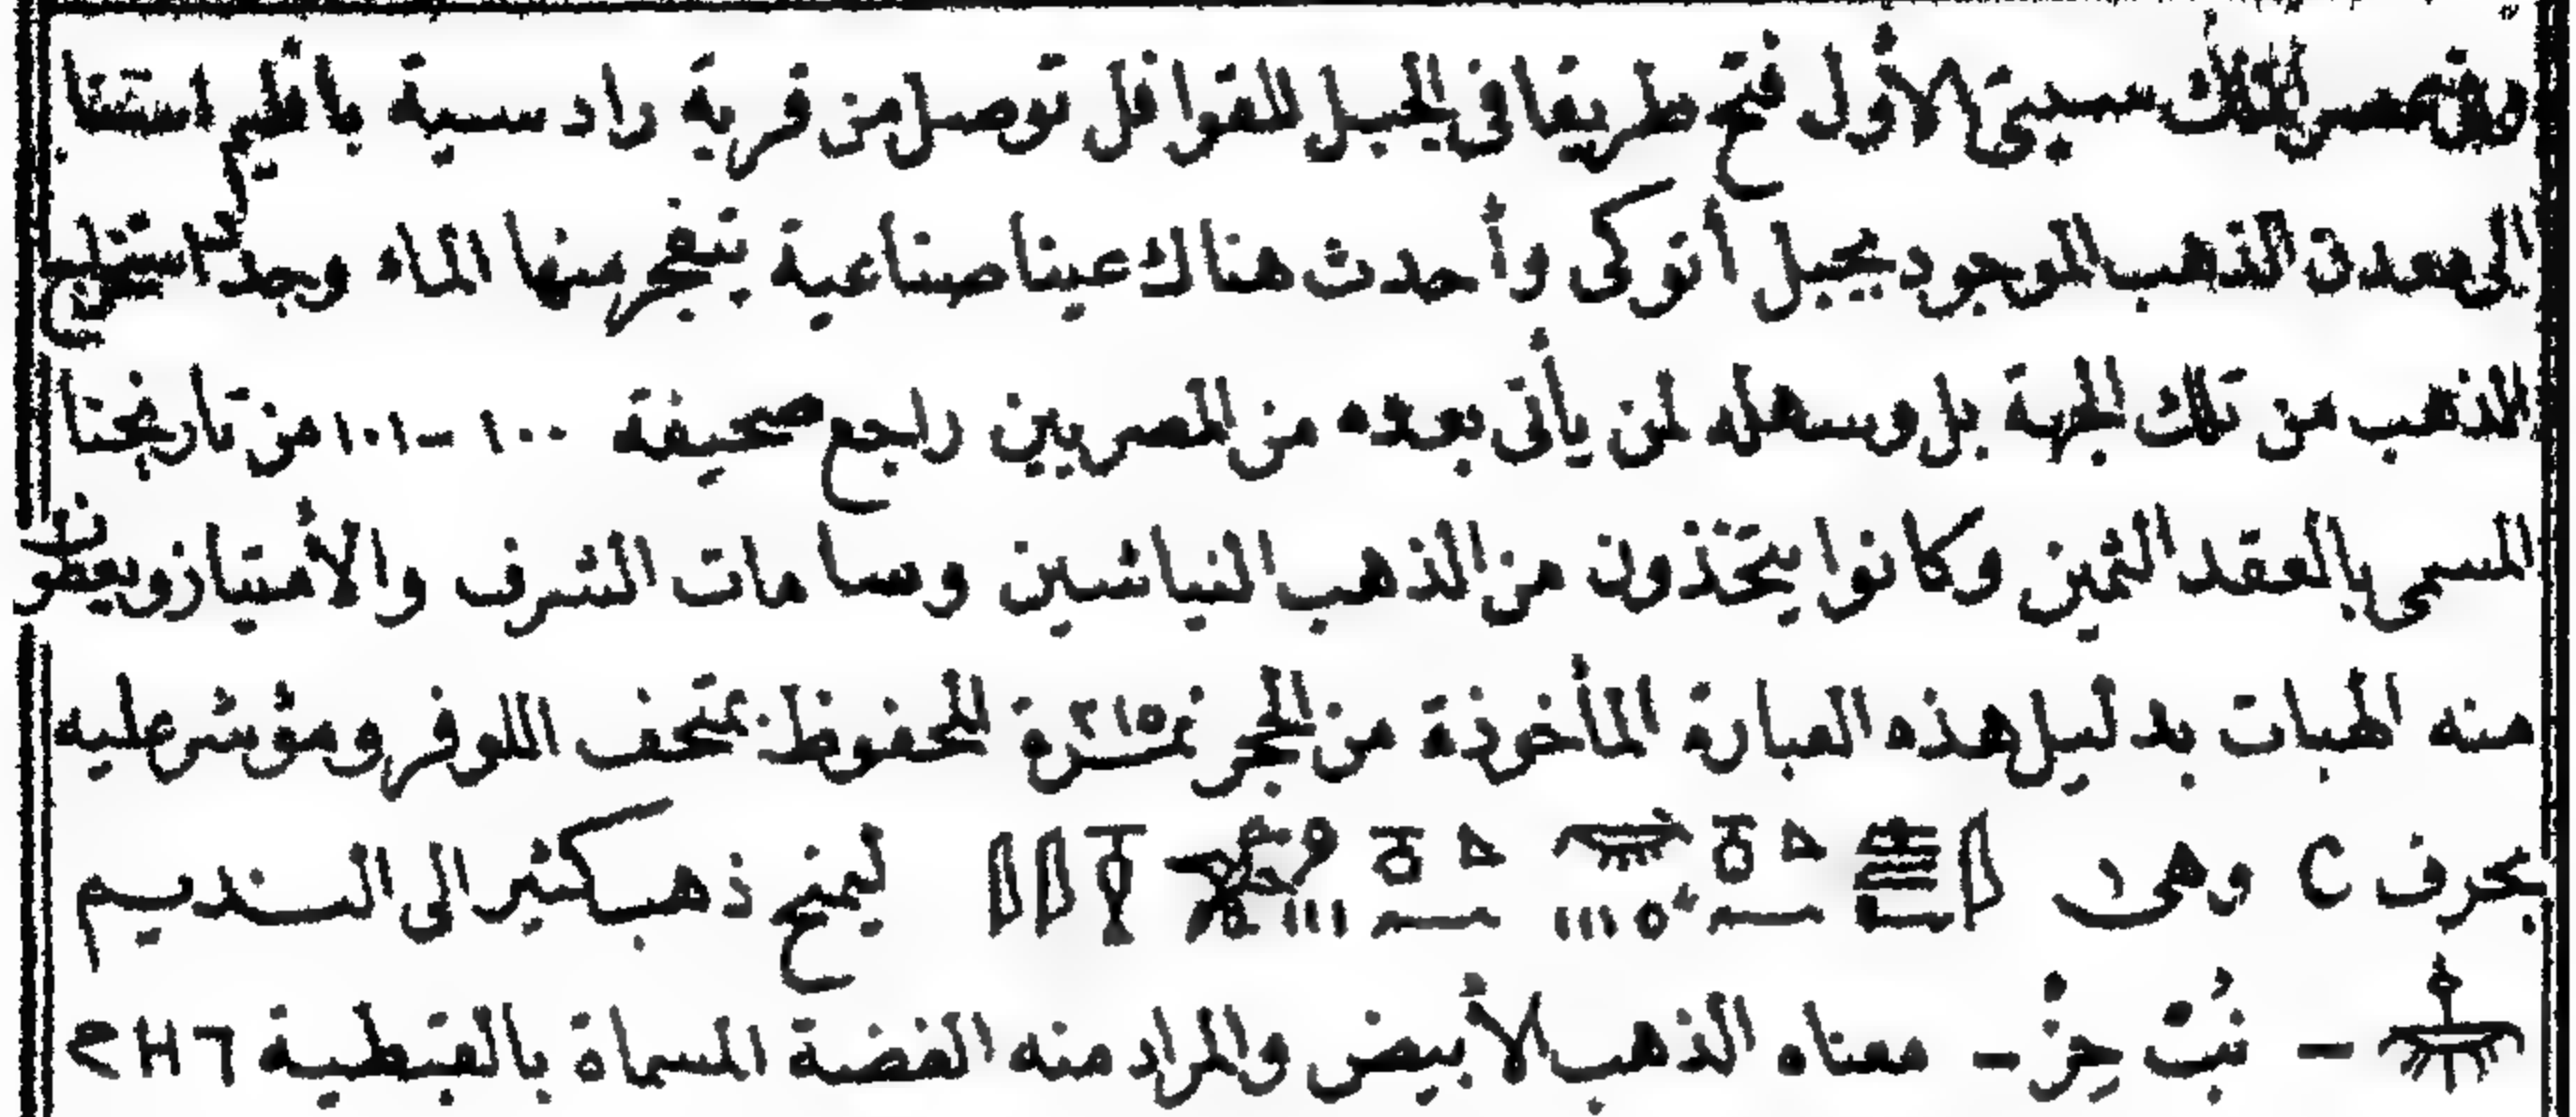 وفي مصر الملك سيتى الأول فتح طريقا فى الجبل للقوافل توصل من قرية رادسية بأقليم اسنا
الى معدن الذهب الموجود بجبل أتوكى وأحدث هناك عينا صناعية يتفجر منها الماء وجد
الذهب من تلك الجهة بل وسهله لمن يأتى بعده من المصريين راجع صحيفة ١٠٠ – ١٠١ من تاريخنا
المسمى بالعقد الثمين وكانوا يتخذون من الذهب النياشين وسامات الشرف والأمتياز ويعطون
منه الهبات بدليل هذه العبارة المأخوذة من الحجر نمرة المحفوظ بمتحف اللوفر ومؤشر عليه
بحرف C وهى ليمنح ذهب كثير الى النديم
– نُبْ حِزْ – معناه الذهب الأبيض والمراد منه الفضة المسماة بالقبطية